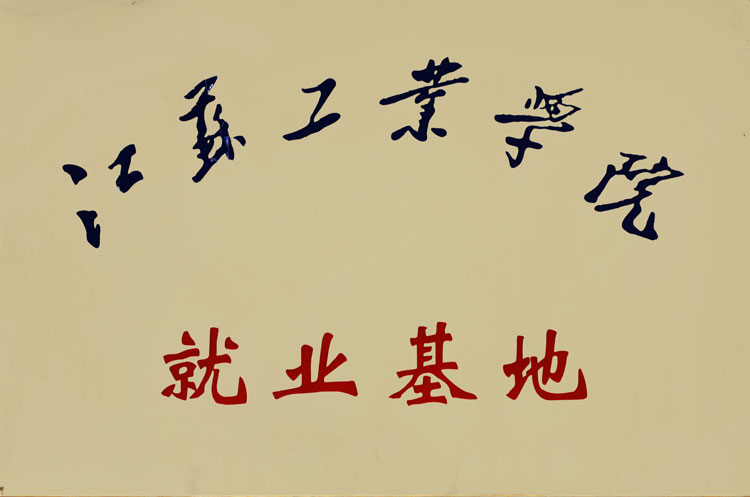 江蘇工業學院
就业基地